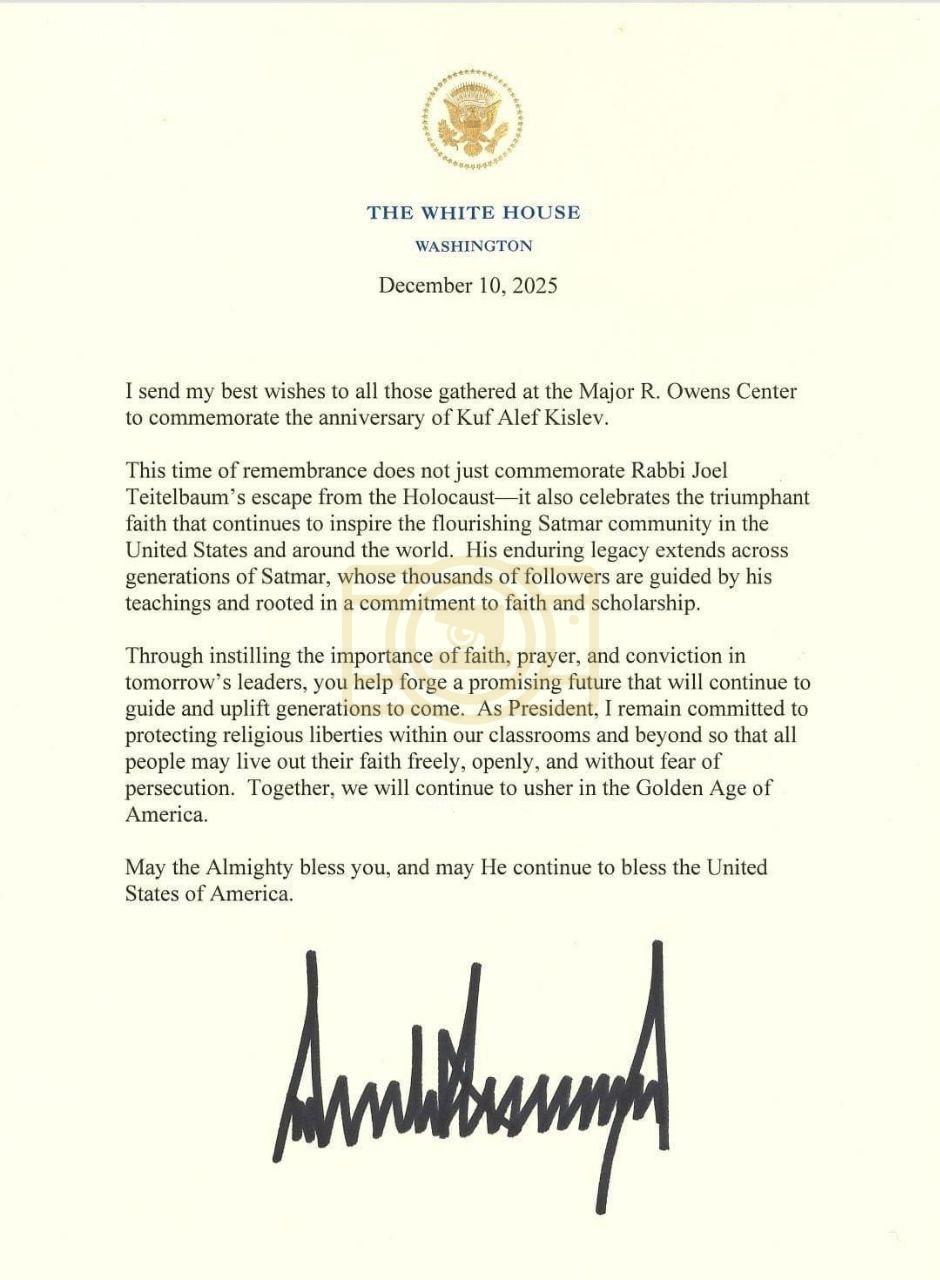 THE WHITE HOUSE
WASHINGTON
December 10, 2025
I send my best wishes to all those gathered at the Major R. Owens Center
to commemorate the anniversary of Kuf Alef Kislev.
This time of remembrance does not just commemorate Rabbi Joel
Teitelbaum’s escape from the Holocaust—it also celebrates the triumphant
faith that continues to inspire the flourishing Satmar community in the
United States and around the world.  His enduring legacy extends across
generations of Satmar, whose thousands of followers are guided by his
teachings and rooted in a commitment to faith and scholarship.
Through instilling the importance of faith, prayer, and conviction in
tomorrow’s leaders, you help forge a promising future that will continue to
guide and uplift generations to come.  As President, I remain committed to
protecting religious liberties within our classrooms and beyond so that all
people may live out their faith freely, openly, and without fear of
persecution.  Together, we will continue to usher in the Golden Age of
America.
May the Almighty bless you, and may He continue to bless the United
States of America.